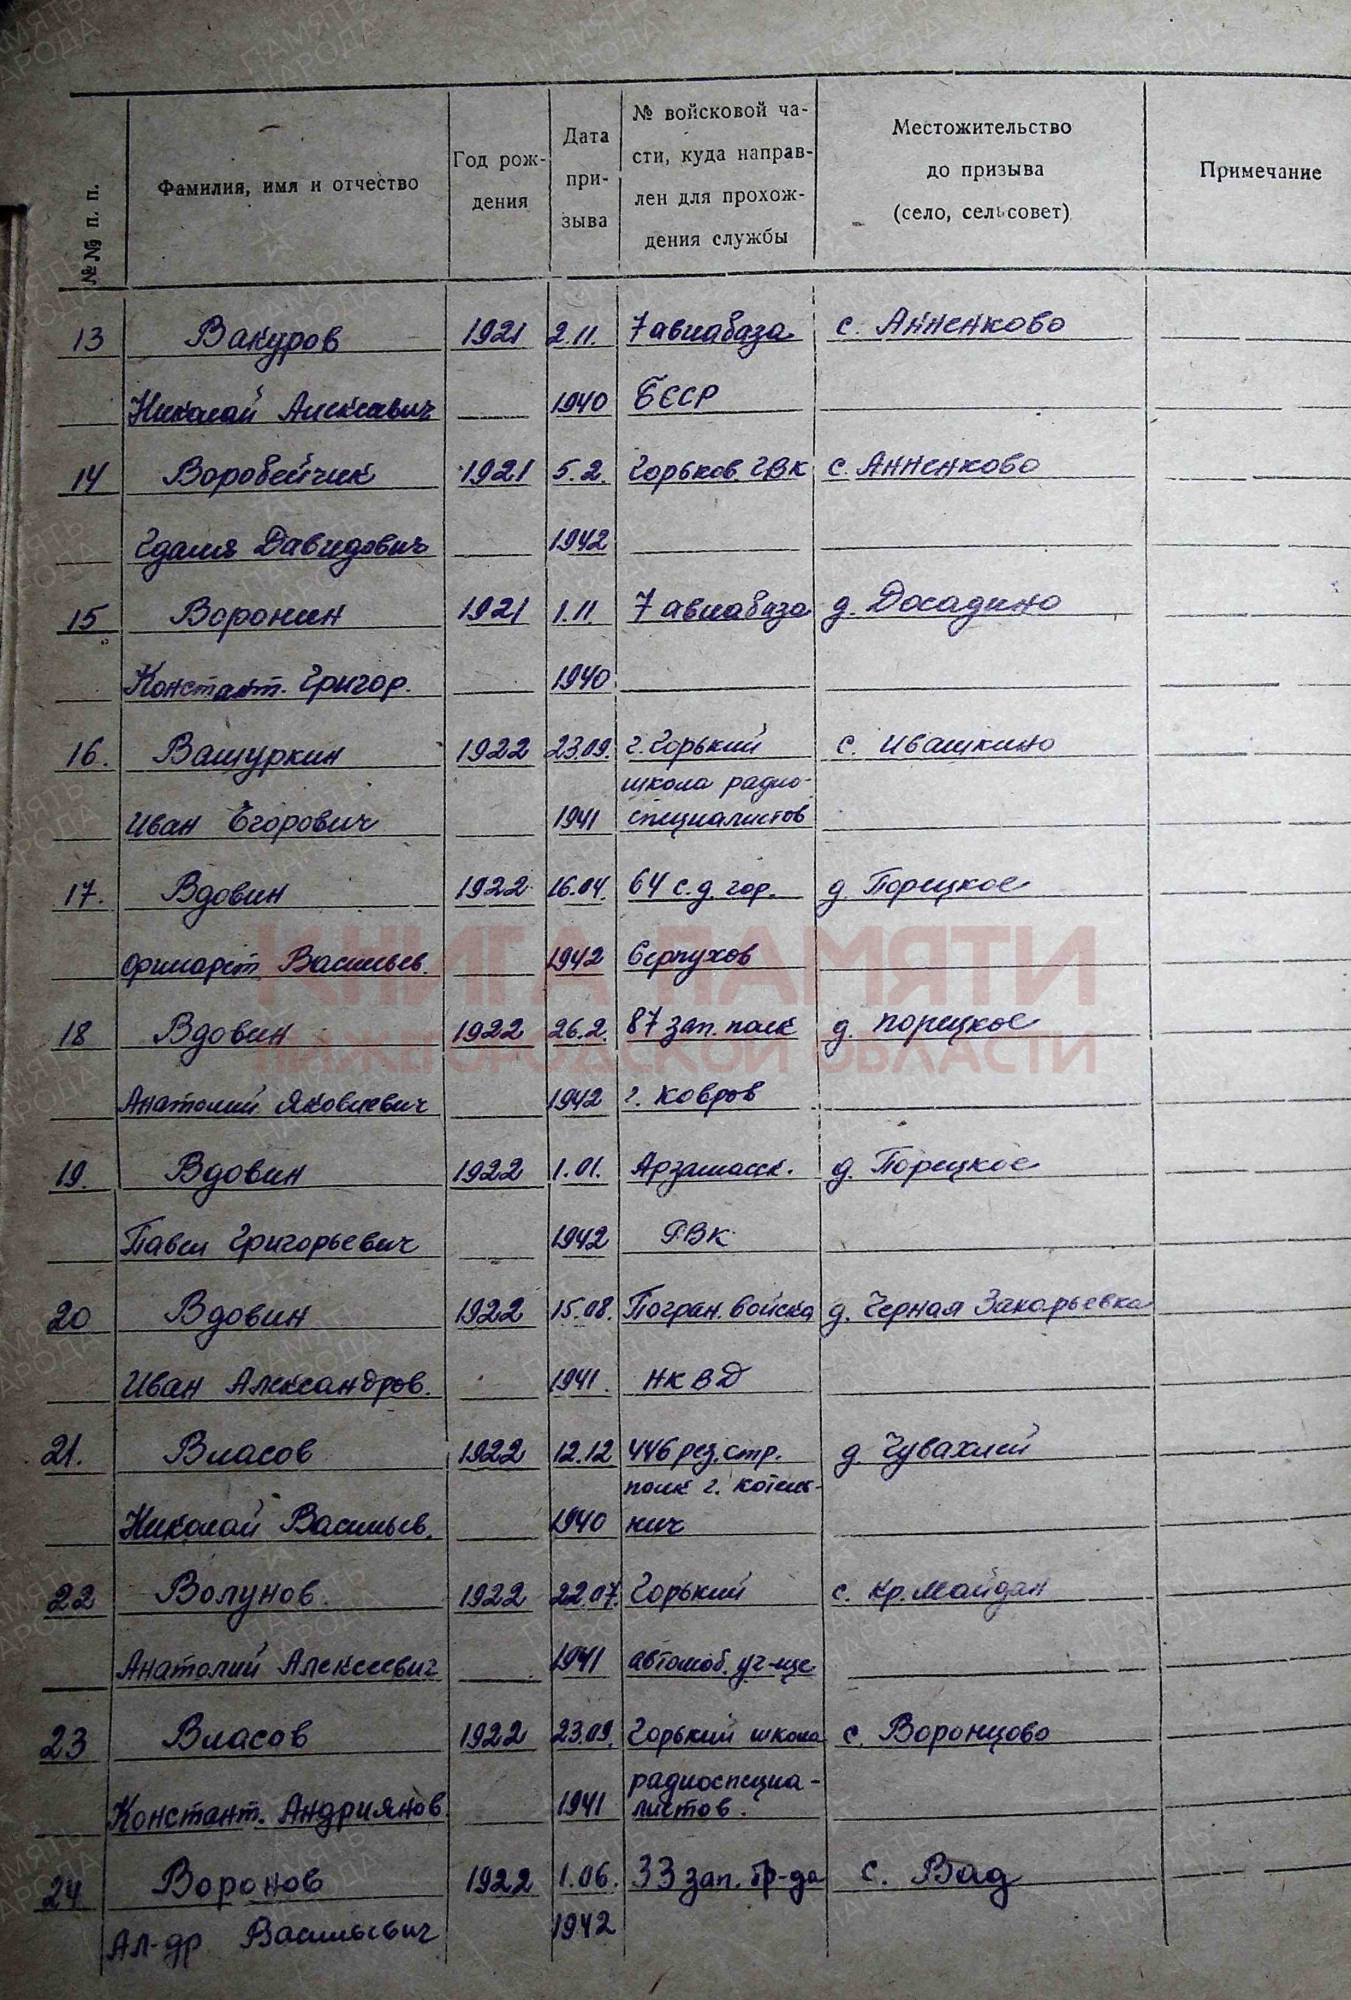 №№ п. п.
Фамилия, имя и отчество
Год рож-
дения
Дата
при-
зыва
№ войсковой ча-
сти, куда направ-
лен для прохож-
дения службы
Местожительство
до призыва
(село, сельсовет)
Примечание
13 Вакуров 1921 2.11. 7 авиабаза с. Анненково
Николай Алексеевич 1940 БССР
14 Воробейчик 1921 5.2. Горьков. ГВК с. Анненково
Гдалия Давидович 1942
15 Воронин 1921 1.11. 7 авиабаза д. Досадино
Констант. Григор. 1940
16. Вашуркин 1922 23.09. г. Горький с. Ивашкино
школа радио-
Иван Егорович 1941 специалистов
17. Вдовин 1922 16.04. 64 с.д. гор. д. Порецкое
Филарет Васильев. 1942 Серпухов
18 Вдовин 1922 26.2. 87 зап. полк д. Порецкое
Анатолий Яковлевич 1942 г. Ковров
19. Вдовин 1922 1.01. Арзамасск. д. Порецкое
Павел Григорьевич 1942 РВК
20 Вдовин 1922 15.08. Погран. войска д. Черная Захарьевка
Иван Александров. 1941. НКВД
21. Власов 1922 12.12 446 рез. стр. д. Чувахлей
полк г. Котель-
Николай Васильев. 1940 нич
22 Волунов 1922 22.07. Горький с. Кр. Майдан
Анатолий Алексеевич 1941 автомоб. уч-ще
23 Власов 1922 23.09. Горький школа с. Воронцово
радиоспециа-
Констант. Андриянов. 1941 листов.
24 Воронов 1922 1.06. 33 зап. бр-да с. Вад
Ал-др Васильевич 1942
КНИГА ПАМЯТИ
НИЖЕГОРОДСКОЙ ОБЛАСТИ
ПАМЯТЬ
НАРОДА